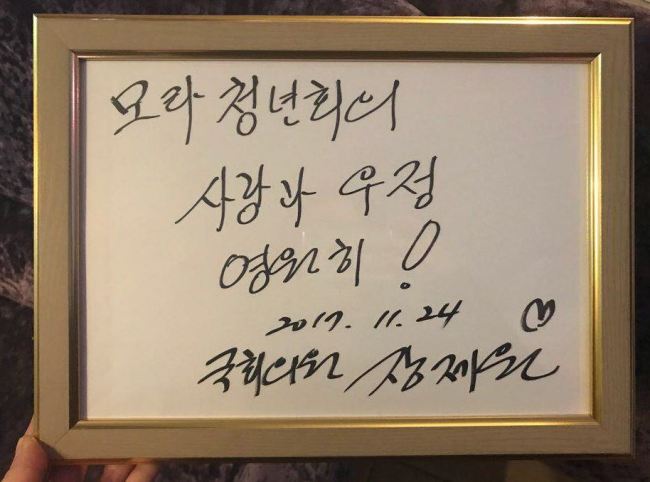 모라 청년회의
사랑과 우정
영원히!
2017. 11. 24
국회의원 장제원